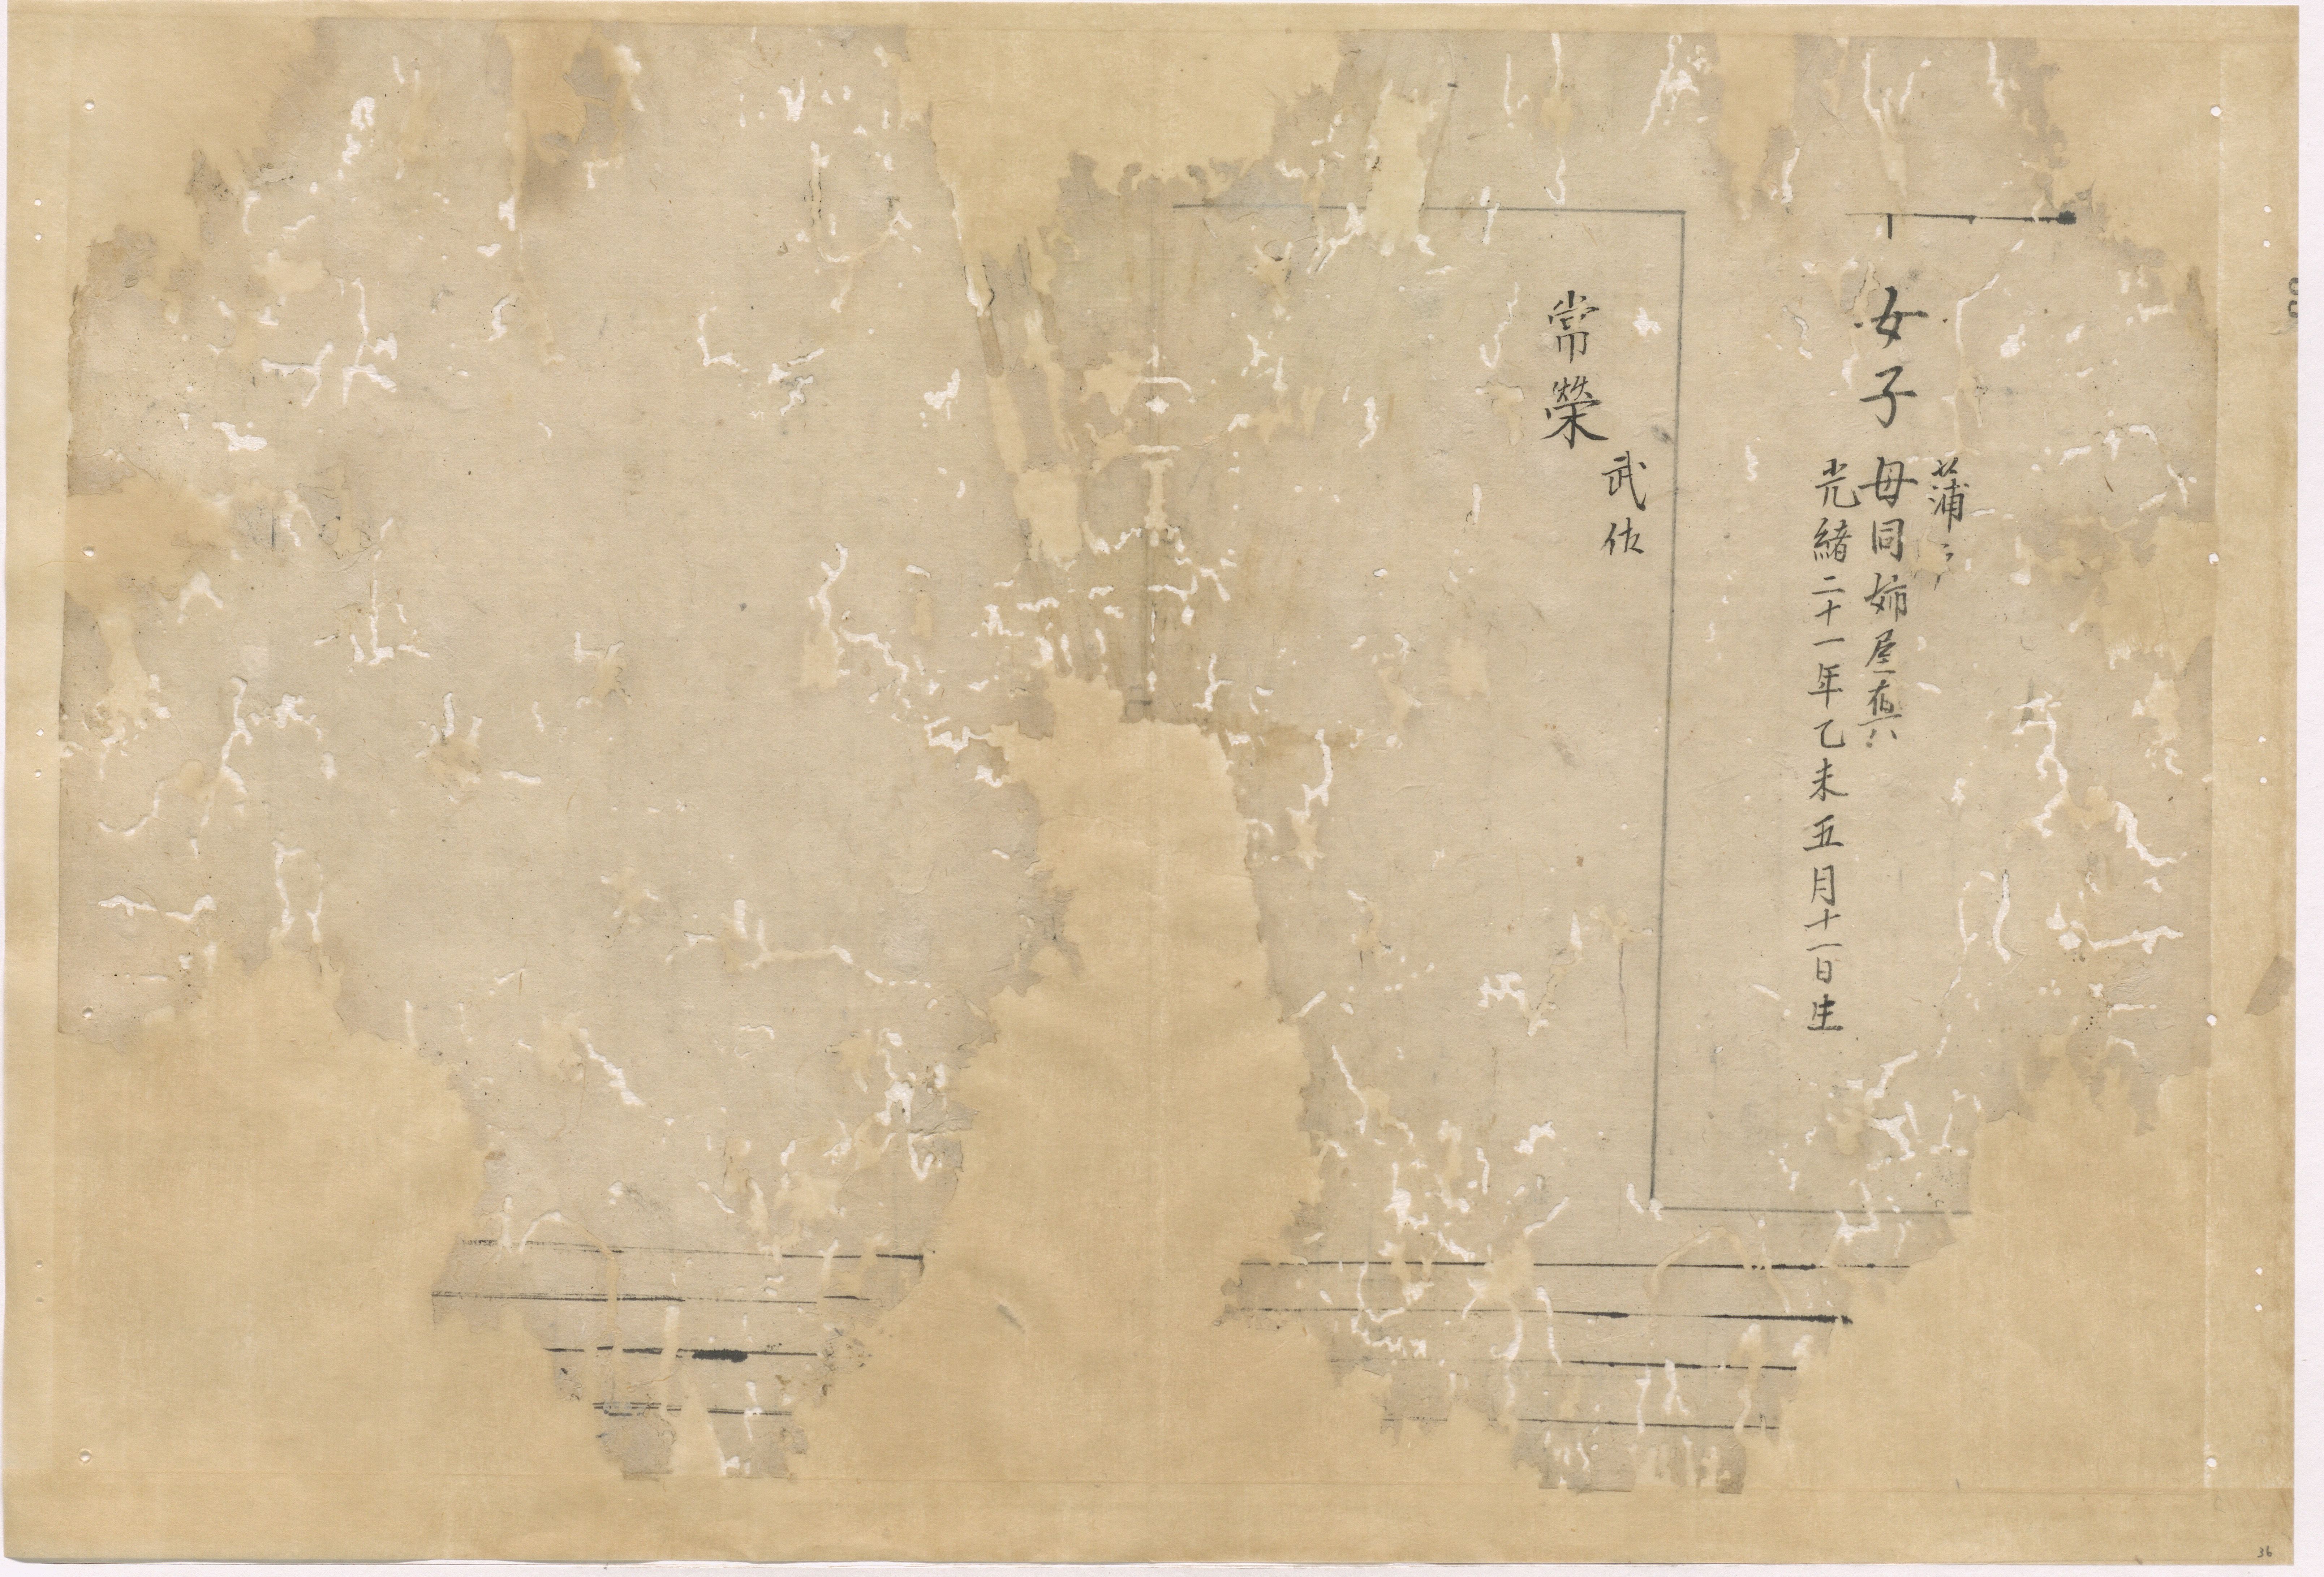 蒲〻
女子 母同姉屋
光緒二十一年乙未五月十一日生
武佐
常榮
36